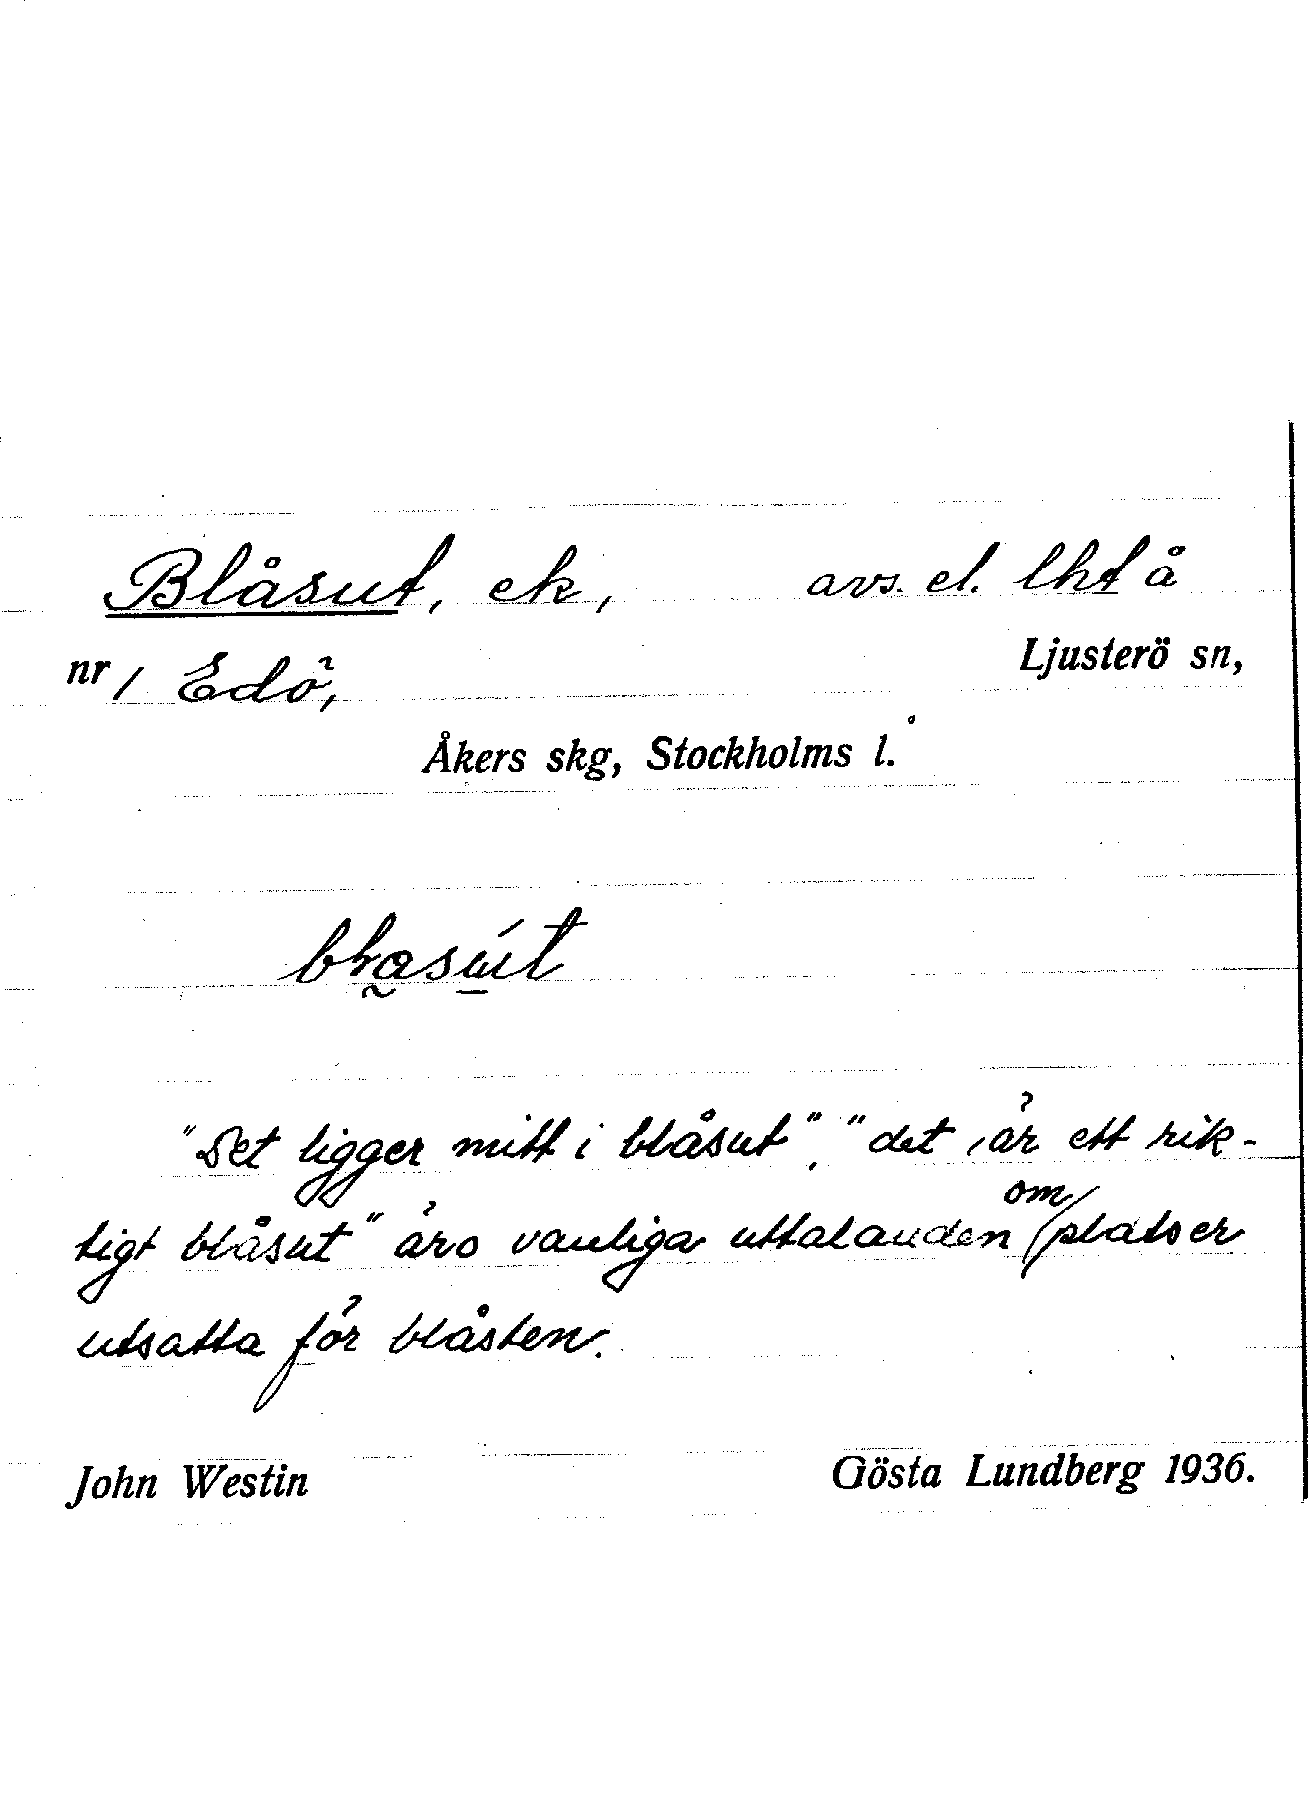 Blåsut, ek, avs. el. lht å
nr 1 Edö, Ljusterö sn,
Åkers skg, Stockholms l.
"Det ligger mitt i blåsut", "det är ett rik-
tigt blåsut" äro vanliga uttalanden om platser
utsatta för blåsten.
John Westin Gösta Lundberg 1936.